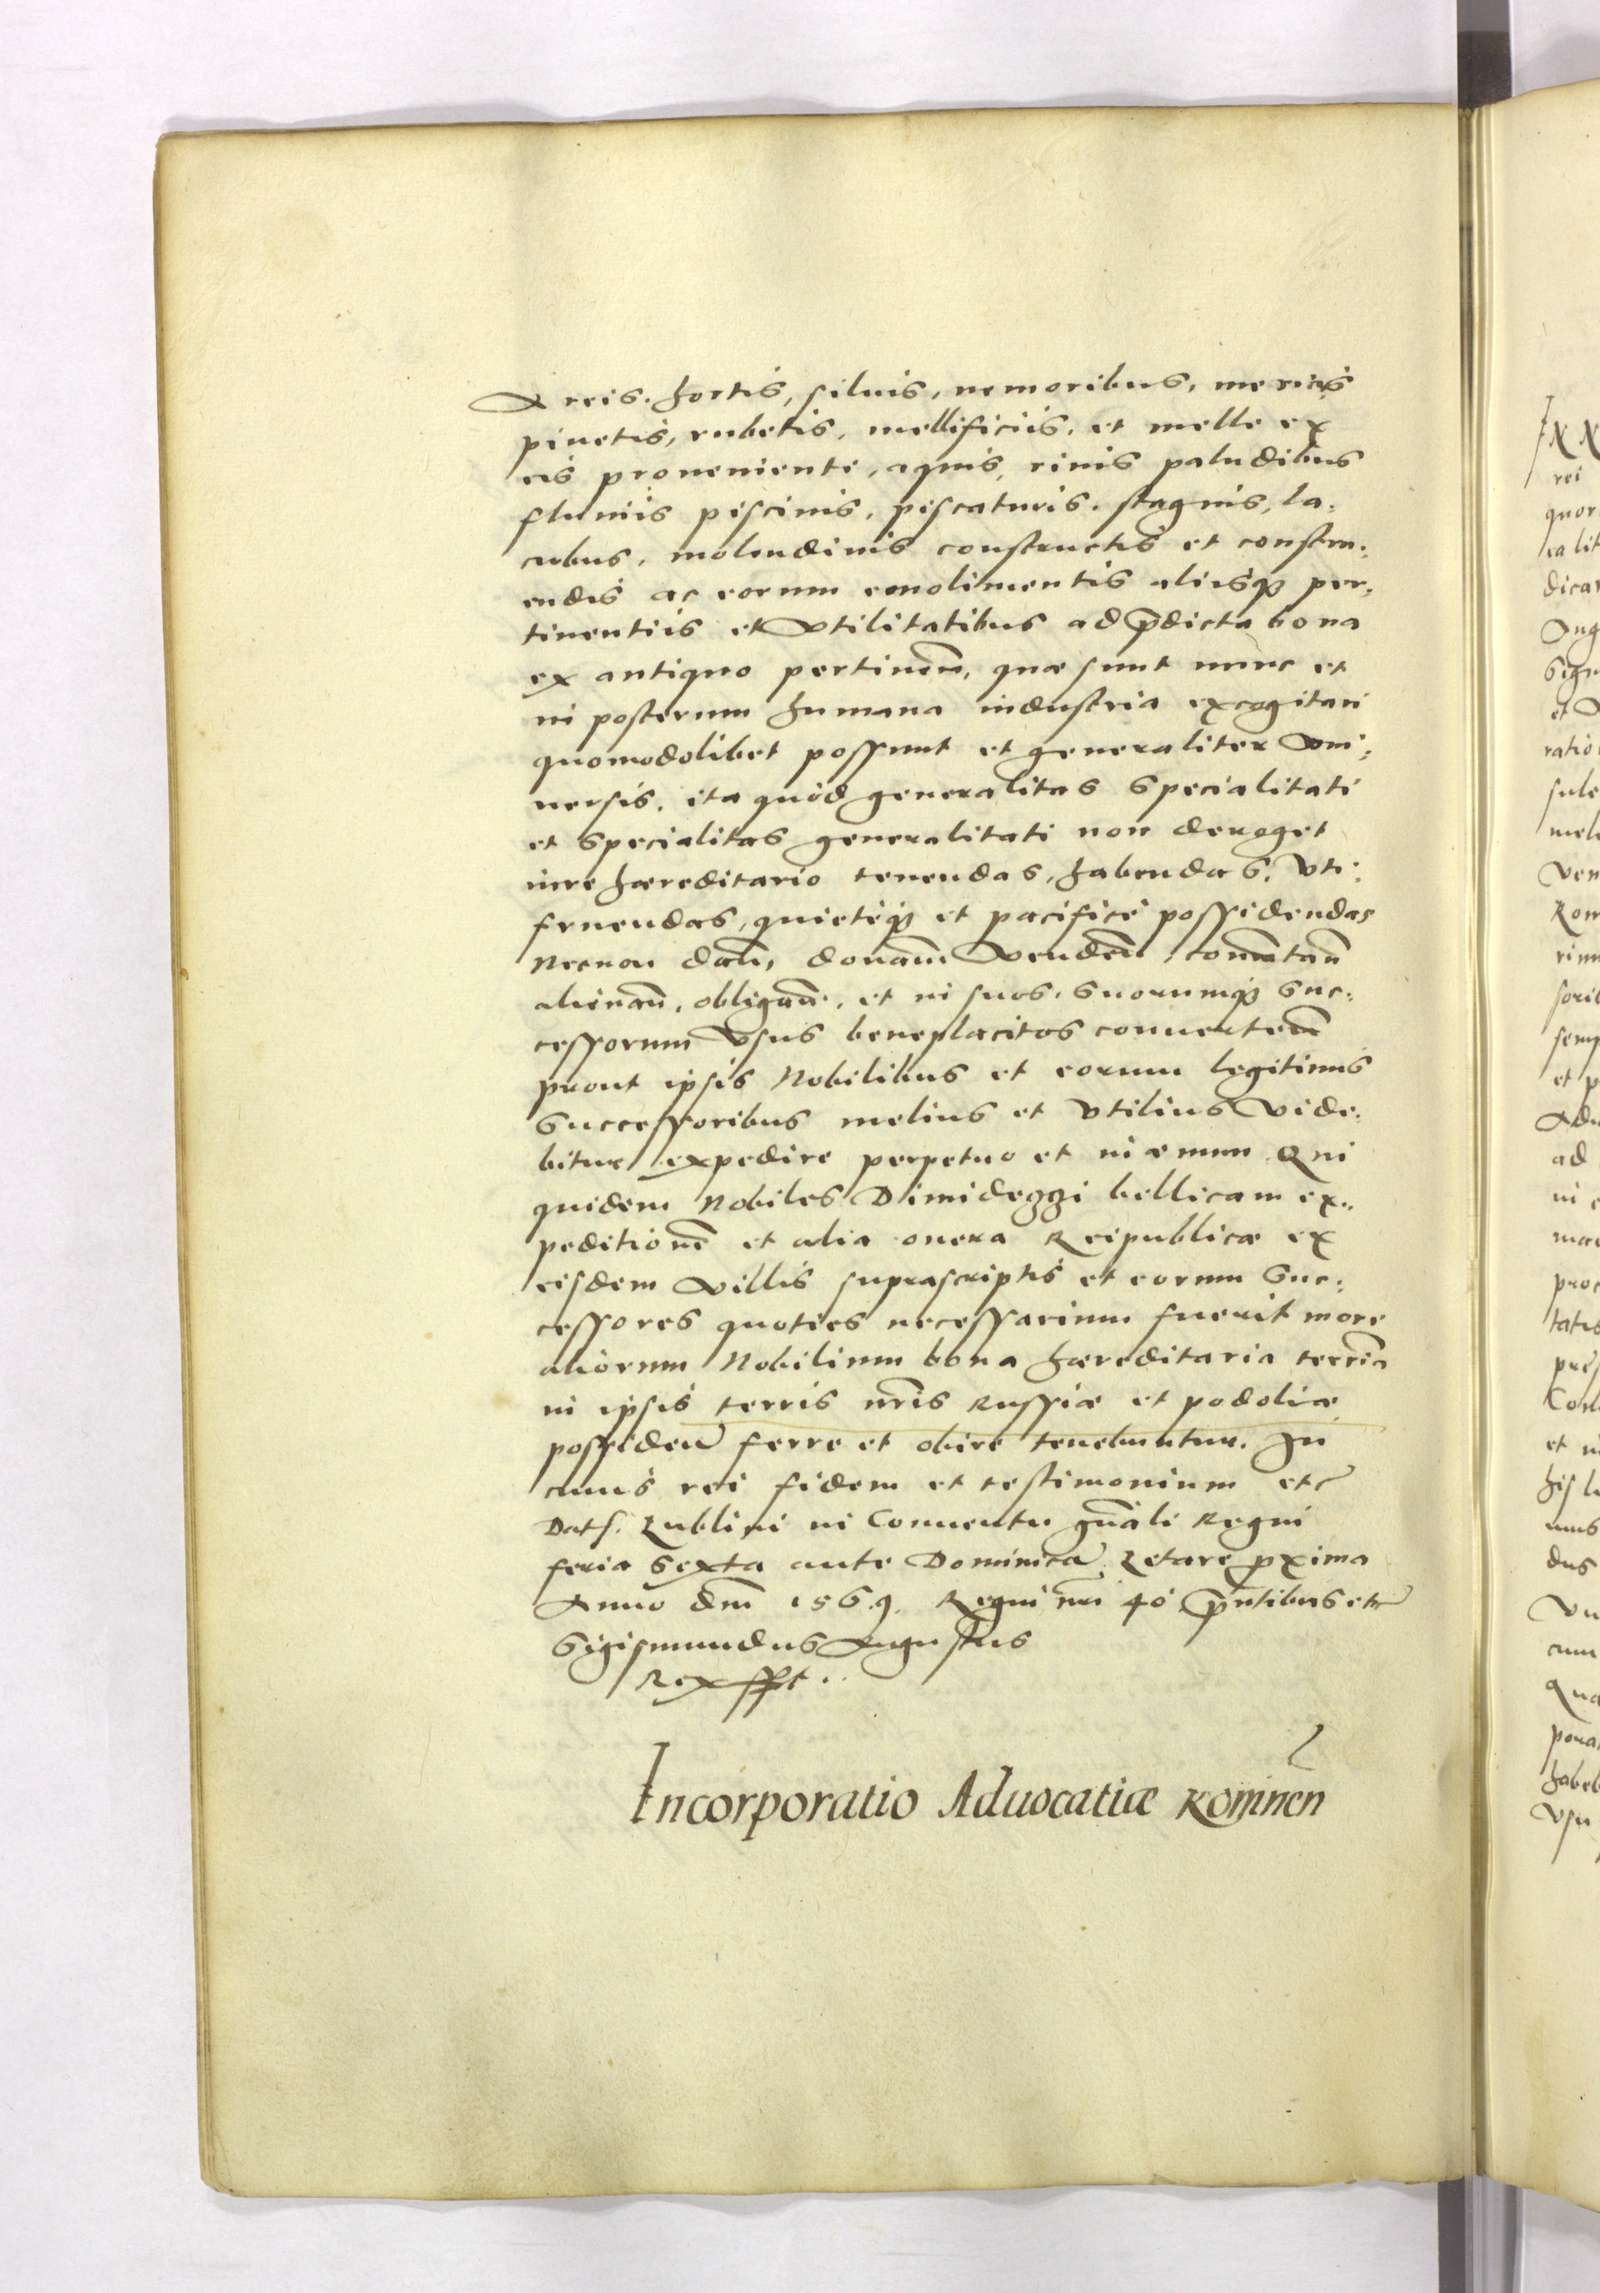 Areis. hortis, siluis, nemoribus, mericis
pinetis, rubetis, mellificiis. et melle ex
eis proueniente, aquis, riuis paludibus
fluuiis piscinis, piscaturis. stagnis, la:
cubus, molendinis constructis et constru:
endis ac eorum emolimentis aliisq per:
tinentiis et Vtilitatibus ad p̄dicta bona
ex antiquo pertineñ, quæ sunt nunc et
in posterum humana industria excogitari
quomodolibet possunt et generaliter Vni:
uersis. ita quòd generalitas specialitati
et specialitas generalitati non deroget
iure hæreditario tenendas, habendas, Vti:
fruendas, quietéq et pacificè possidendas
Necnon dañ, donañ Vendeñ, comutañ
alienañ, obligañ, et in suos, suorumq suc:
cessorum Vsus beneplacitos conuerteñ
prout ipsis Nobilibus et eorum legitimis
Successoribus melius et Vtilius Vide:
bitur expedire perpetuo et in æuum Qui
quidem Nobiles Dimideggi bellicam ex:
peditionē et alia onera Reipublicæ ex
eisdem Villis suprascriptis et eorum suc:
cessores quoties necessarium fuerit more
aliorum Nobilium bona hæreditaria terr̄ia
in ipsis terris nr̄is Russiæ et podoliæ
possideñ ferre et obire tenebuntur. In
cuius rei fidem et testimonium etc
Dat. Lublini in Conuentu gn̄ali Regni
feria sexta ante Dominicā Letare p̄xima
Anno dnī 1569. Regni nr̄i 40 p̄ntibus etc
Sigismundus Augustus
Rex sspt.
Incorporatio Aduocatiæ Komneñ